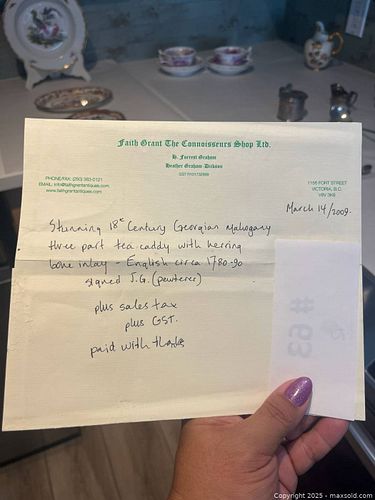 Faith Grant The Connoisseurs Shop Ltd.
H. Forrest Graham
Heather Graham-Dickson
PHONE/FAX: (250) 383-0121
EMAIL: info@faithgrantantiques.com
www.faithgrantantiques.com
1156 FORT STREET
VICTORIA, B.C.
V8V 3K8
March 14/2009.
Stunning 18th Century Georgian Mahogany
three part tea caddy with herring
bone inlay - English circa 1780-90
signed J.G. (pewterer)
plus sales tax
plus GST.
paid with thanks
#63
Copyright 2025 - maxsold.com